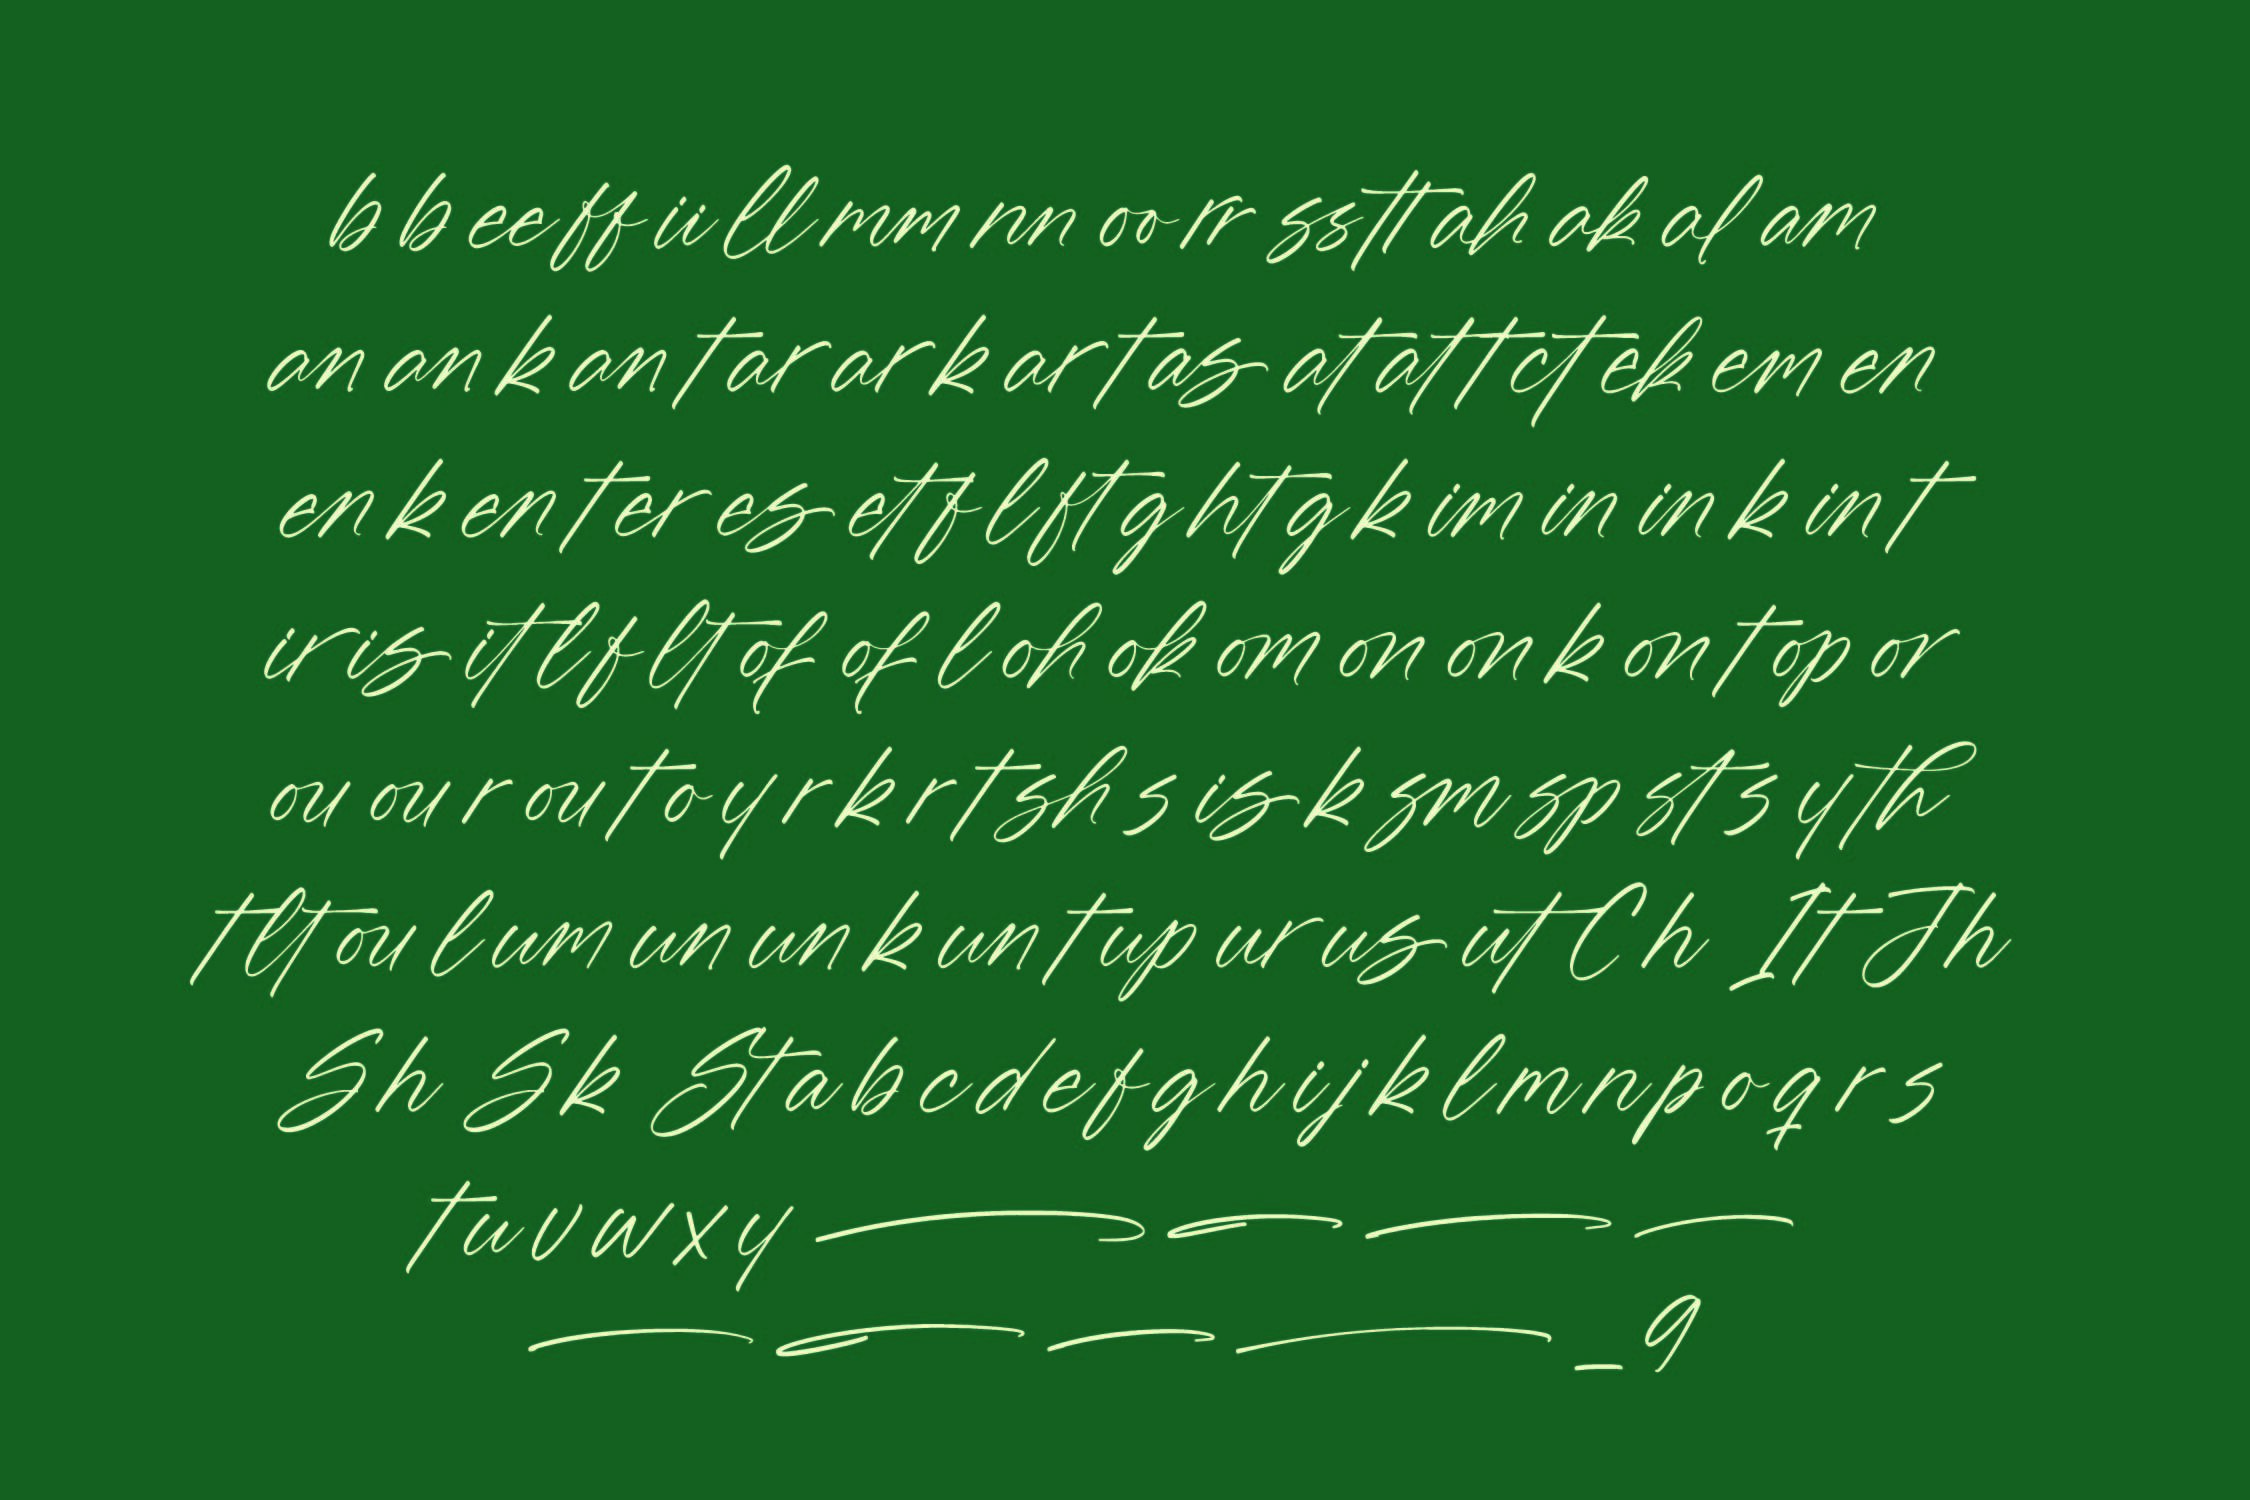 b b ee ff ii ll mm nn oo rr ss tt ah ak al am
an an k an t ar ar k ar t as at at t ct ek em en
en k en t er es et f l ft g ht g k im in in k in t
ir is it l f lt of of l oh ok om on on k on t op or
ou ou r ou t o y r k r t sh s is k sm sp st s y th
t lt ou l um un un k un t up ur us ut Ch It Jh
Sh Sk St a b c d e f g h i j k l m n p o q r s
t u v w x y
_ g